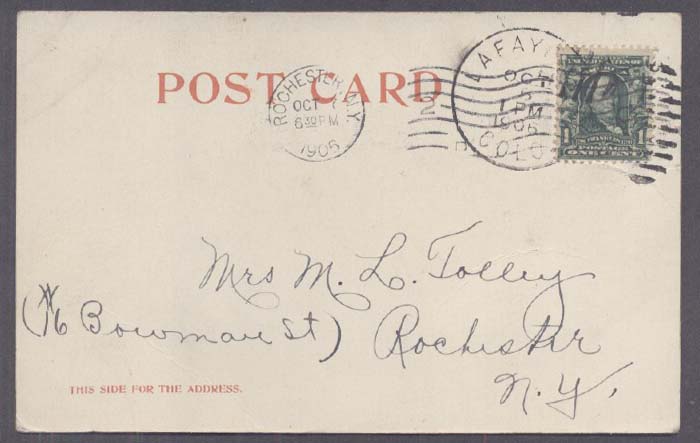 POST CARD
ROCHESTER, N.Y.
OCT 7
6 30 PM
1905
LAFAY
OCT
5
1 PM
1905
COLO
1 1
POSTAGE
ONE CENT
Mrs M. L. Tolley
(16 Bowman St) Rochester
N.Y.
THIS SIDE FOR THE ADDRESS.